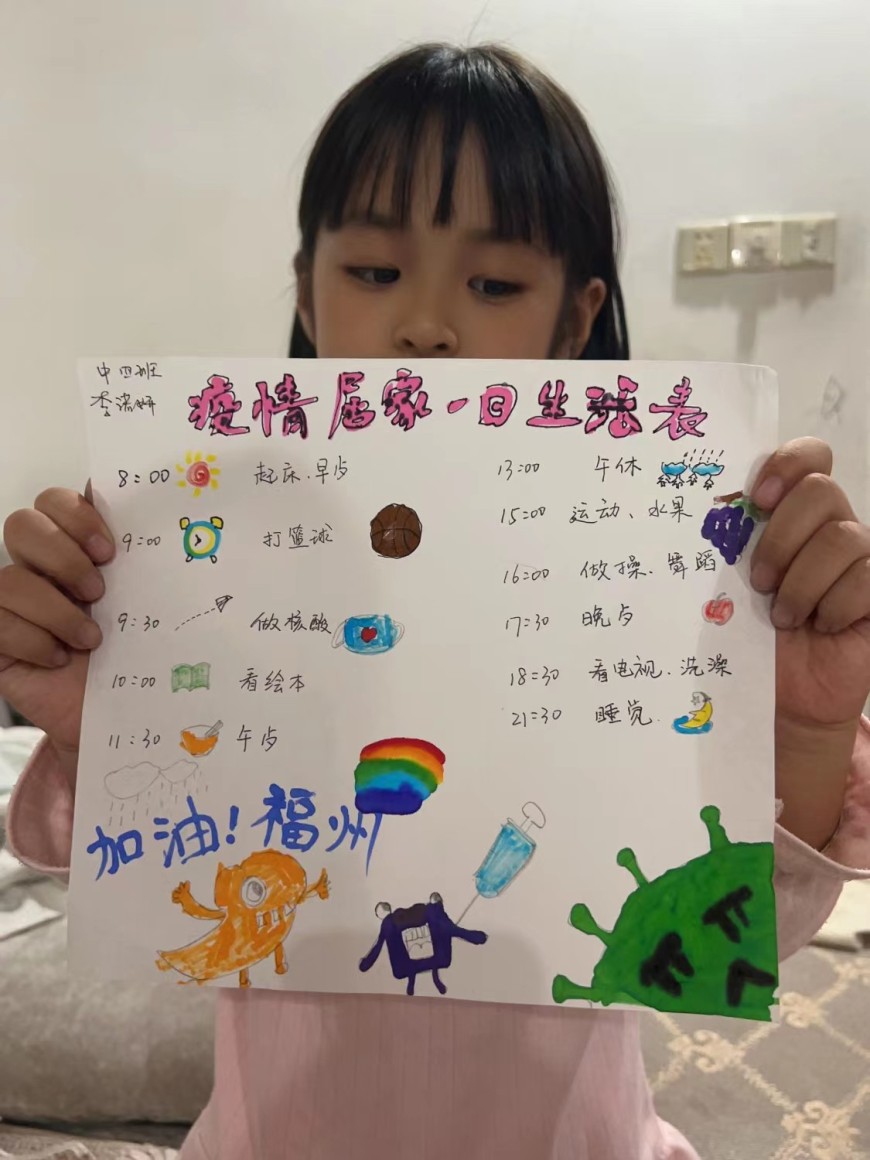 中四班
李诺妍
疫情居家一日生活表
8:00 起床、早点
9:00 打篮球
9:30 做核酸
10:00 看绘本
11:30 午点
13:00 午休
15:00 运动、水果
16:00 做操、舞蹈
17:30 晚点
18:30 看电视、洗澡
21:30 睡觉.
加油!福州